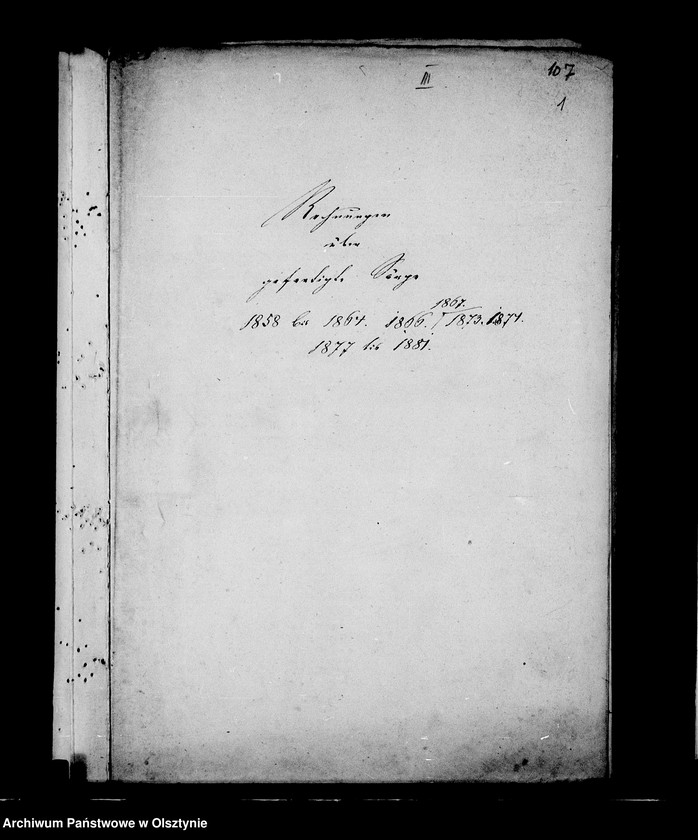 III
107
1
Rechnungen
über
gefertigte Särge
1867.
1858 bis 1864. 1866. / 1873. 1874.
1877 bis 1881.
Archiwum Państwowe w Olsztynie